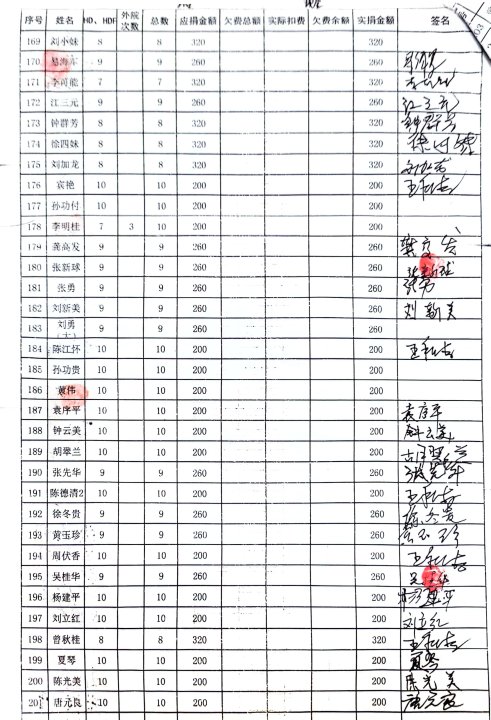 序号 姓名 HD、HDF 外院次数 总数 应捐金额 欠费总额 实际扣费 欠费余额 实捐金额 签名
169 刘小妹 8 8 320 320
170 易海东 9 9 260 260
171 李可能 7 7 320 320
172 江三元 9 9 260 260 江三元
173 钟群芳 8 8 320 320 钟群芳
174 徐四妹 8 8 320 320 徐四妹
175 刘加龙 8 8 320 320 刘加龙
176 袁艳 10 10 200 200
177 孙功付 10 10 200 200
178 李明桂 7 3 10 200 200
179 龚高发 9 9 260 260 龚高发
180 张新球 9 9 260 260 张新球
181 张勇 9 9 260 260 张勇
182 刘新美 9 9 260 260 刘新美
183 刘勇（大） 9 9 260 260
184 陈江怀 10 10 200 200
185 孙功贵 10 10 200 200
186 黄伟 10 10 200 200
187 袁序平 10 10 200 200 袁序平
188 钟云美 10 10 200 200 钟云美
189 胡攀兰 10 10 200 200 胡攀兰
190 张先华 9 9 260 260 张先华
191 陈德清2 10 10 200 200
192 徐冬贵 9 9 260 260 徐冬贵
193 黄玉珍 9 9 260 260 黄玉珍
194 周伏香 10 10 200 200
195 吴桂华 9 9 260 260
196 杨建平 10 10 200 200 杨建平
197 刘立红 10 10 200 200 刘立红
198 曾秋桂 8 8 320 320
199 夏琴 10 10 200 200 夏琴
200 陈光美 10 10 200 200 陈光美
201 唐元良 10 10 200 200
03